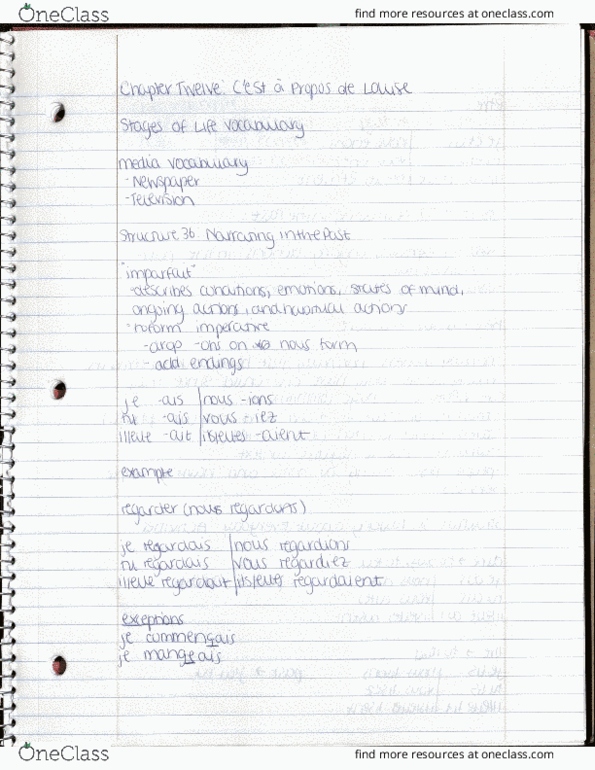 OneClass
find more resources at oneclass.com
Chapter Twelve: C'est à Propos de Louise
Stages of Life Vocabulary
media vocabulary
- Newspaper
- Television
Structure 36 Narrating in the Past
"imparfait"
- describes conditions, emotions, states of mind,
ongoing actions, and habitual actions
- to form imperative
- drop -ons on nous form
- add endings
je -ais nous -ions
tu -ais vous -iez
il/elle -ait ils/elles -aient
example
regarder (nous regardons)
je regardais nous regardions
tu regardais vous regardiez
il/elle regardait ils/elles regardaient
exceptions
je commençais
je mangeais
OneClass
find more resources at oneclass.com